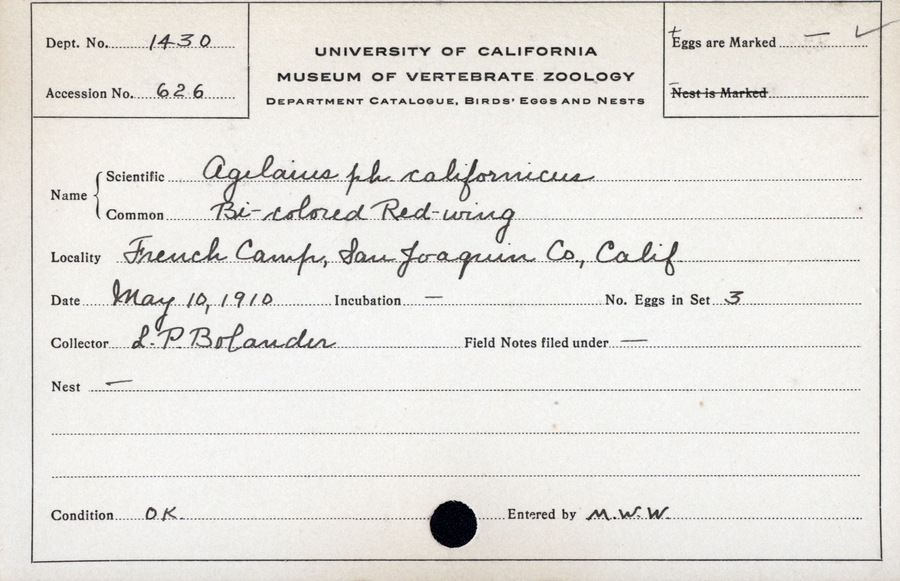 Dept. No. 1430
Accession No. 626
UNIVERSITY OF CALIFORNIA
MUSEUM OF VERTEBRATE ZOOLOGY
DEPARTMENT CATALOGUE, BIRDS' EGGS AND NESTS
Eggs are Marked —  ✓
Nest is Marked
Name { Scientific Agelaius ph californicus
Common Bi-colored Red-wing
Locality French Camp, San Joaquin Co., Calif
Date May 10, 1910 Incubation — No. Eggs in Set 3
Collector L. P. Bolander Field Notes filed under —
Nest —
Condition O.K. Entered by M.W.W.